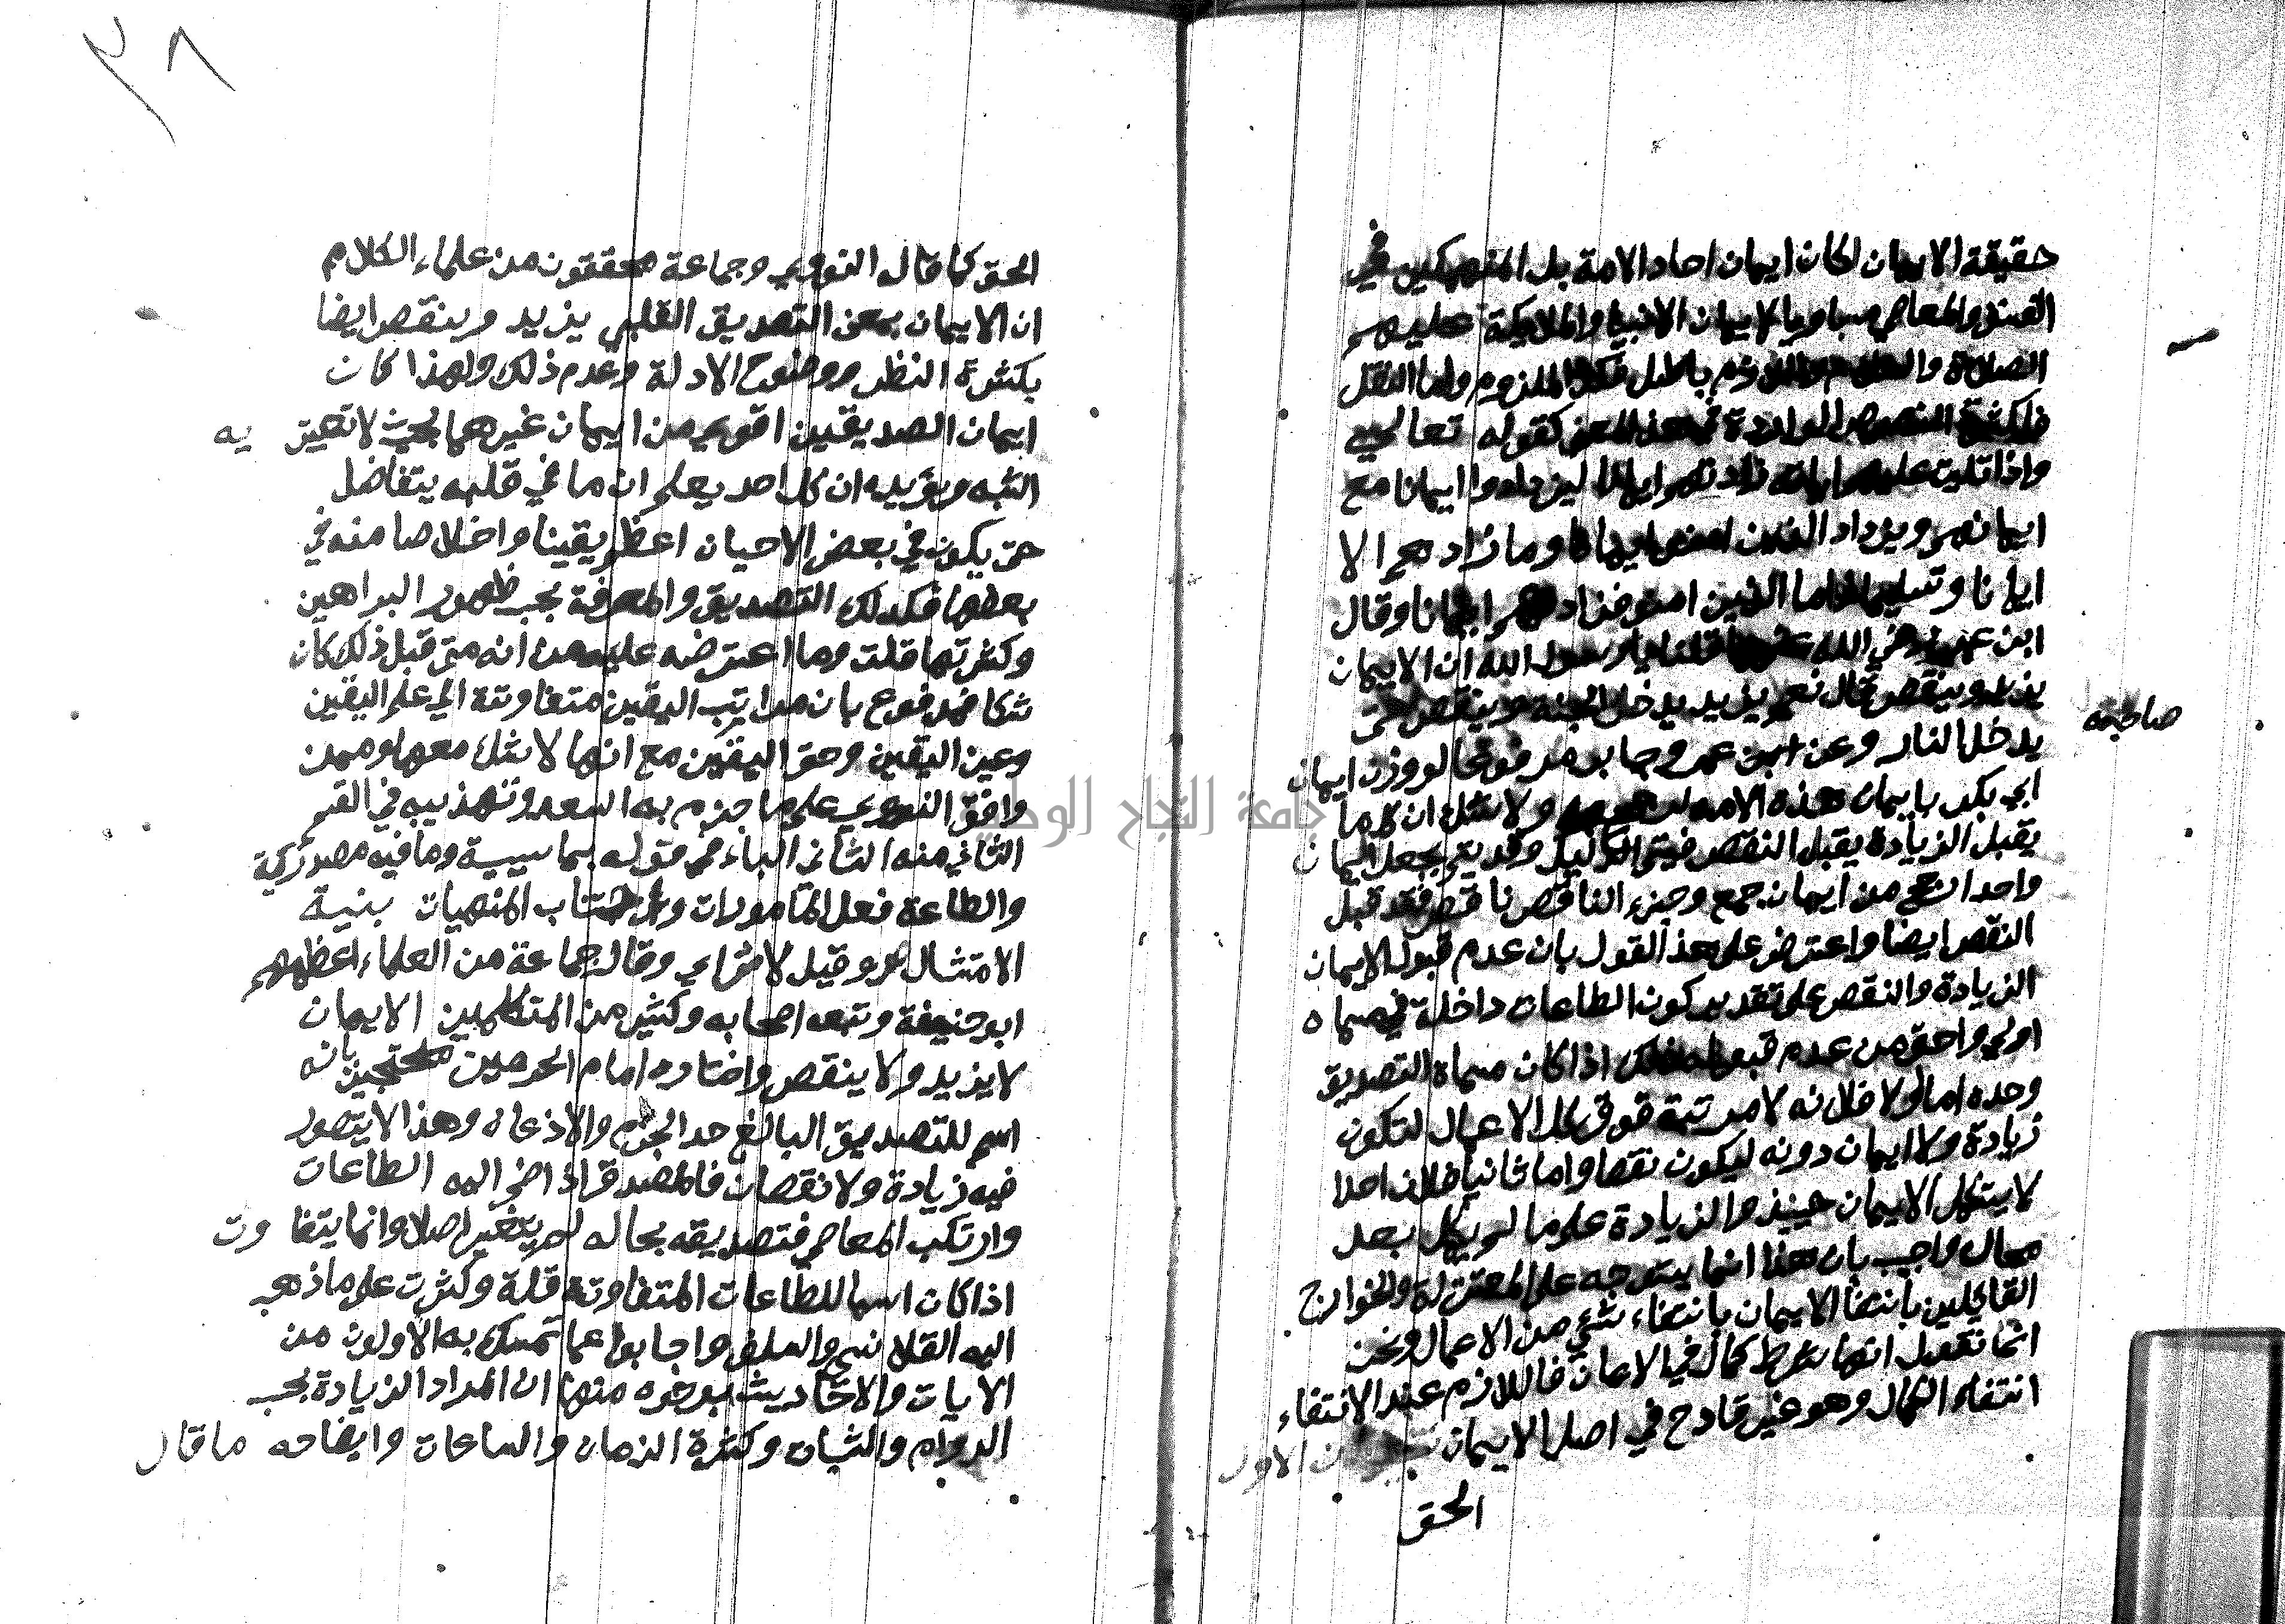 حقيقة الايمان لكان ايمان احاد الامة بل المنهمكين في
الفسق والمعاصي مساويا لايمان الانبيا والملايكة عليهم
الصلاة والسلام واللازم باطل فكذا الملزوم واما النقل
فلكثرة النصوص الواردة في هذا المعنى كقوله تعالى
واذا تليت عليهم اياته زادتهم ايمانا ليزدادوا ايمانا مع
ايمانهم ويزداد الذين امنوا ايمانا وما زادهم الا
ايمانا وتسليما فاما الذين امنوا فزادتهم ايمانا وقال
ابن عمر رضي الله عنهما قلنا يا رسول الله ان الايمان
يزيد وينقص قال نعم يزيد يدخل الجنة وينقص حتى
صاحبه
يدخل النار وعن ابن عمر وجابر مرفوعا لو وزن ايمان
ابي بكر بايمان هذه الامة ولا شك ان كل ما
يقبل الزيادة يقبل النقص فيتم الدليل وقد يتم بجعل ايمان
واحد انقص من ايمان جمع وجزء الناقص ناقص فقد قبل
النقص ايضا واعترض على هذا القول بان عدم قبول الايمان
الزيادة والنقص على تقدير كون الطاعات داخلة في مسماه
اولى واحق من عدم قبوله ذلك اذا كان مسماة التصديق
وحده اما اولا فلانه لا مرتبة فوق كل الاعمال لتكون
زيادة ولا ايمان دونه ليكون نقصا واما ثانيا فلان احدا
لا يستكمل الايمان حينيذ والزيادة على ما لم يكمل بعد
محال واجيب بان هذا انما يتوجه على المعتزلة والخوارج
القايلين بانتفا الايمان بانتفاء شئ من الاعمال ونحن
انما نقول انها شرط كمال في الايمان فاللازم عند الانتفاء
انتفاء الكمال وهو غير قادح في اصل الايمان الاول
الحق
٣٨
الحق كما قال النووي وجماعة محققون من علماء الكلام
ان الايمان بمعنى التصديق القلبي يزيد وينقص ايضا
بكثرة النظر ووضوح الادلة وعدم ذلك ولهذا كان
ايمان الصديقين اقوى من ايمان غيرهم بحيث لا تعتريه
الشبه ويؤيده ان كل احد يعلم ان ما في قلبه يتفاضل
حتى يكون في بعض الاحيان اعظم يقينا واخلاصا منه في
بعضها فكذلك التصديق والمعرفة بحسب ظهور البراهين
وكثرتها قلت وما اعترض به عليه من انه متى قبل ذلك كان
شكا فمدفوع بان مراتب اليقين متفاوتة الى علم اليقين
وعين اليقين وحق اليقين مع انها لا شك معها وممن
وافق النووي على ما جزم به السعد وتهذيبه في القسم
الثاني منه الثاني الباء في قوله بما سببية وما فيه مصدرية
والطاعة فعل المأمورات واجتناب المنهيات بنية
الامتثال هو وقيل لا اي وقال جماعة من العلماء اعظمهم
ابو حنيفة وتبعه اصحابه وكثير من المتكلمين الايمان
لا يزيد ولا ينقص واختاره امام الحرمين محتجين بانه
اسم للتصديق البالغ حد الجزم والاذعان وهذا لا يتصور
فيه زيادة ولا نقصان فالمصدق اذا ضم اليه الطاعات
وارتكب المعاصي فتصديقه بحاله لم يتغير اصلا وانما يتفاوت
اذا كان اسما للطاعات المتفاوتة قلة وكثرت على ما ذهب
اليه القلانسي والسلف واجابوا عما تمسك به الاولون من
الايات والاحاديث بوجوه منها ان المراد الزيادة بحسب
الدوام والثبات وكثرة الزمان والساعات وايضاحه ما قال
جامعة النجاح الوطنية